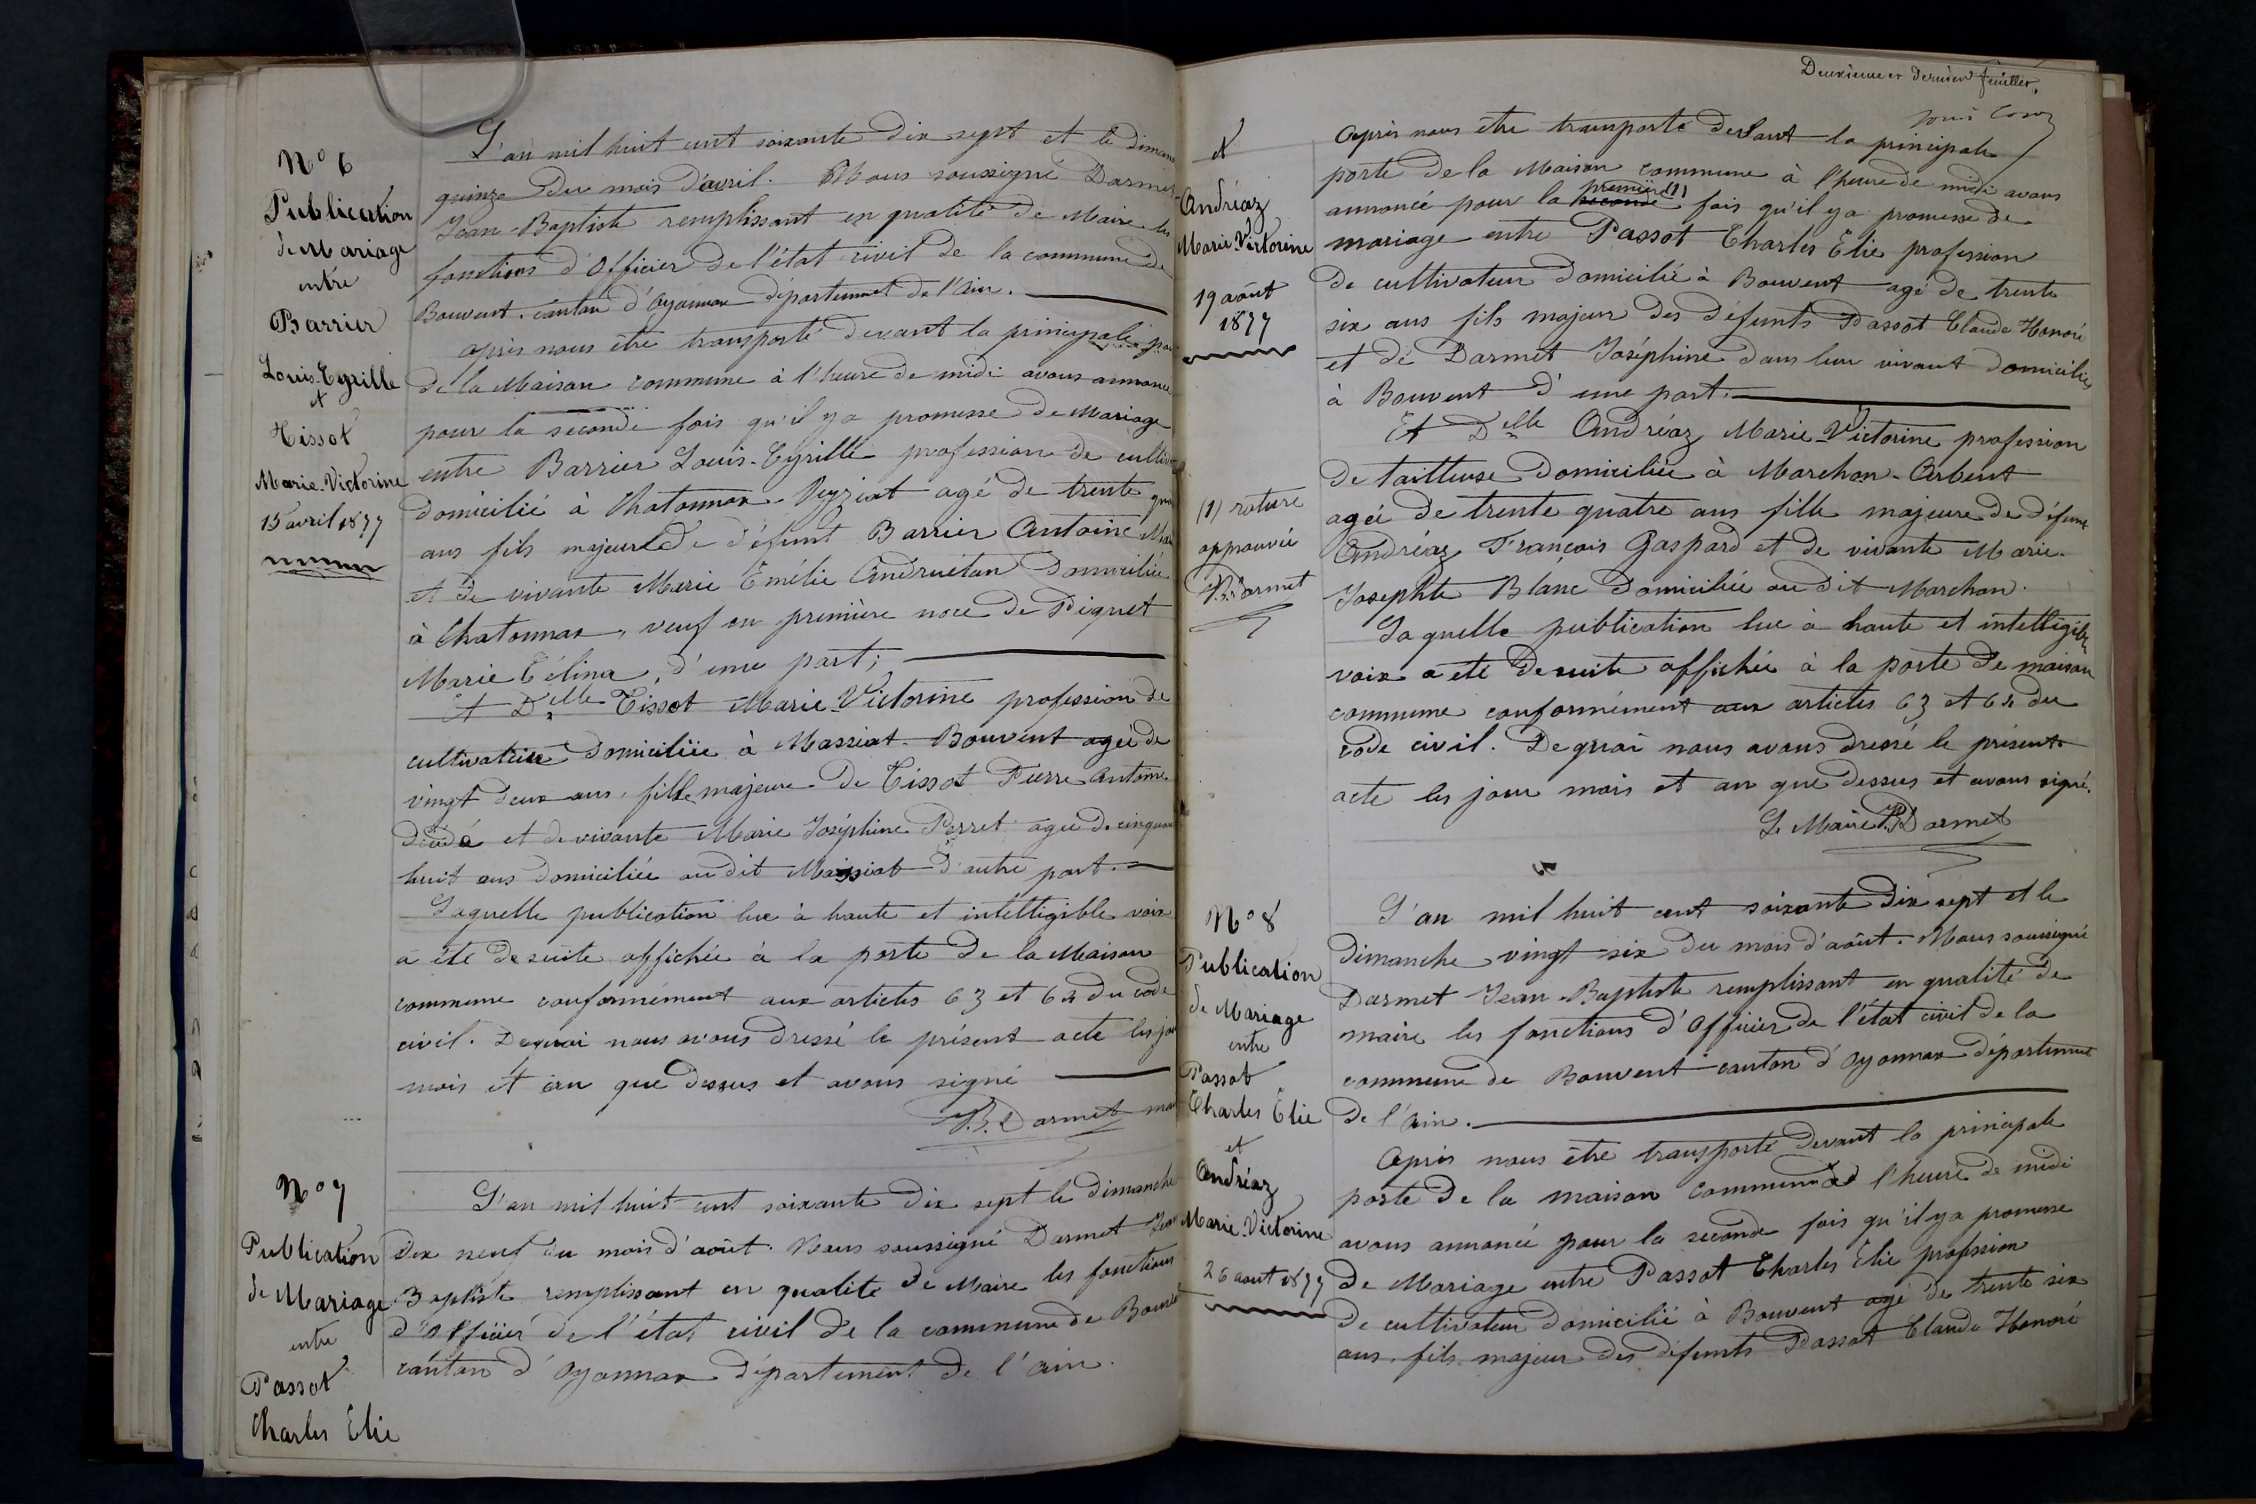 N° 6
Publication
de Mariage
entre
Barrier
Louis-Cyrille
et
Tissot
Marie-Victorine
15 avril 1877
L'an mil huit cent soixante dix sept et le diman
quinze du mois d'avril. Nous soussigné Darmet
Jean-Baptiste remplissant en qualité de Maire les
fonctions d'Officier de l'état civil de la commune de
Bouvent. canton d'Oyonnax département de l'Ain.
après nous être transporté devant la principale por
de la Maison commune à l'heure de midi avons annoncé
pour la seconde fois qu'il y a promesse de Mariage
entre Barrier Louis-Cyrille profession de cultiv
domicilié à Chatonnax Veyziat agé de trente qua
ans fils majeur de défunt Barrier Antoine Mar
et de vivante Marie Emélie Andruétan domiciliée
à Chatonnax, veuf en première noce de Piquet
Marie Célina, d'une part;
Et Delle Tissot Marie-Victorine profession de
cultivatrice domiciliée à Massiat-Bouvent agée de
vingt deux ans, fille majeure de Tissot Pierre Antoine
décédé et de vivante Marie Joséphine Perret agée de cinquan
huit ans domiciliée au dit Massiat d'autre part.
Laquelle publication lue à haute et intelligible voix
a été de suite affichée à la porte de la Maison
commune conformément aux articles 63 et 64 du code
civil. De quoi nous avons dressé le présent acte les jou
mois et an que dessus et avons signé
J.B. Darmet mai
N° 7
Publication
de Mariage
entre
Passot
Charles Elie
L'an mil huit cent soixante dix sept le dimanche
dix neuf du mois d'août. Nous soussigné Darmet Jean
Baptiste remplissant en qualité de Maire les fonctions
d'Officier de l'état civil de la commune de Bouvent
canton d'Oyonnax département de l'ain.
Deuxième et dernier feuillet.
et
Andréaz
Marie-Victorine
19 août
1877
(1) rature
approuvée
J.B. Darmet
Après nous être transporté devant la principale
porte de la Maison commune à l'heure de midi avons
annoncé pour la seconde première (1) fois qu'il y a promesse de
mariage entre Passot Charles Elie profession
de cultivateur domicilié à Bouvent agé de trente
six ans fils majeur des défunts Passot Claude Honoré
et de Darmet Joséphine dans leur vivant domiciliés
à Bouvent d'une part.
Et Delle Andréaz Marie-Victorine profession
de tailleuse domiciliée à Marchon-Arbent
agée de trente quatre ans fille majeure de défunt
Andréaz François Gaspard et de vivante Marie-
Josephte Blanc domiciliée au dit Marchon.
Laquelle publication lue à haute et intelligible
voix a été de suite affichée à la porte de maison
commune conformément aux articles 63 et 64 du
code civil. De quoi nous avons dressé le présent
acte les jour mois et an que dessus et avons signé.
Le Maire J.B. Darmet
N° 8
Publication
de Mariage
entre
Passot
Charles Elie
et
Andréaz
Marie-Victorine
26 août 1877
L'an mil huit cent soixante dix sept et le
dimanche vingt-six du mois d'août. Nous soussigné
Darmet Jean-Baptiste remplissant en qualité de
maire les fonctions d'Officier de l'état civil de la
commune de Bouvent canton d'Oyonnax département
de l'ain.
Après nous être transporté devant la principale
porte de la maison commune à l'heure de midi
avons annoncé pour la seconde fois qu'il y a promesse
de Mariage entre Passot Charles Elie profession
de cultivateur domicilié à Bouvent agé de trente six
ans. fils majeur des défunts Passot Claude Honoré